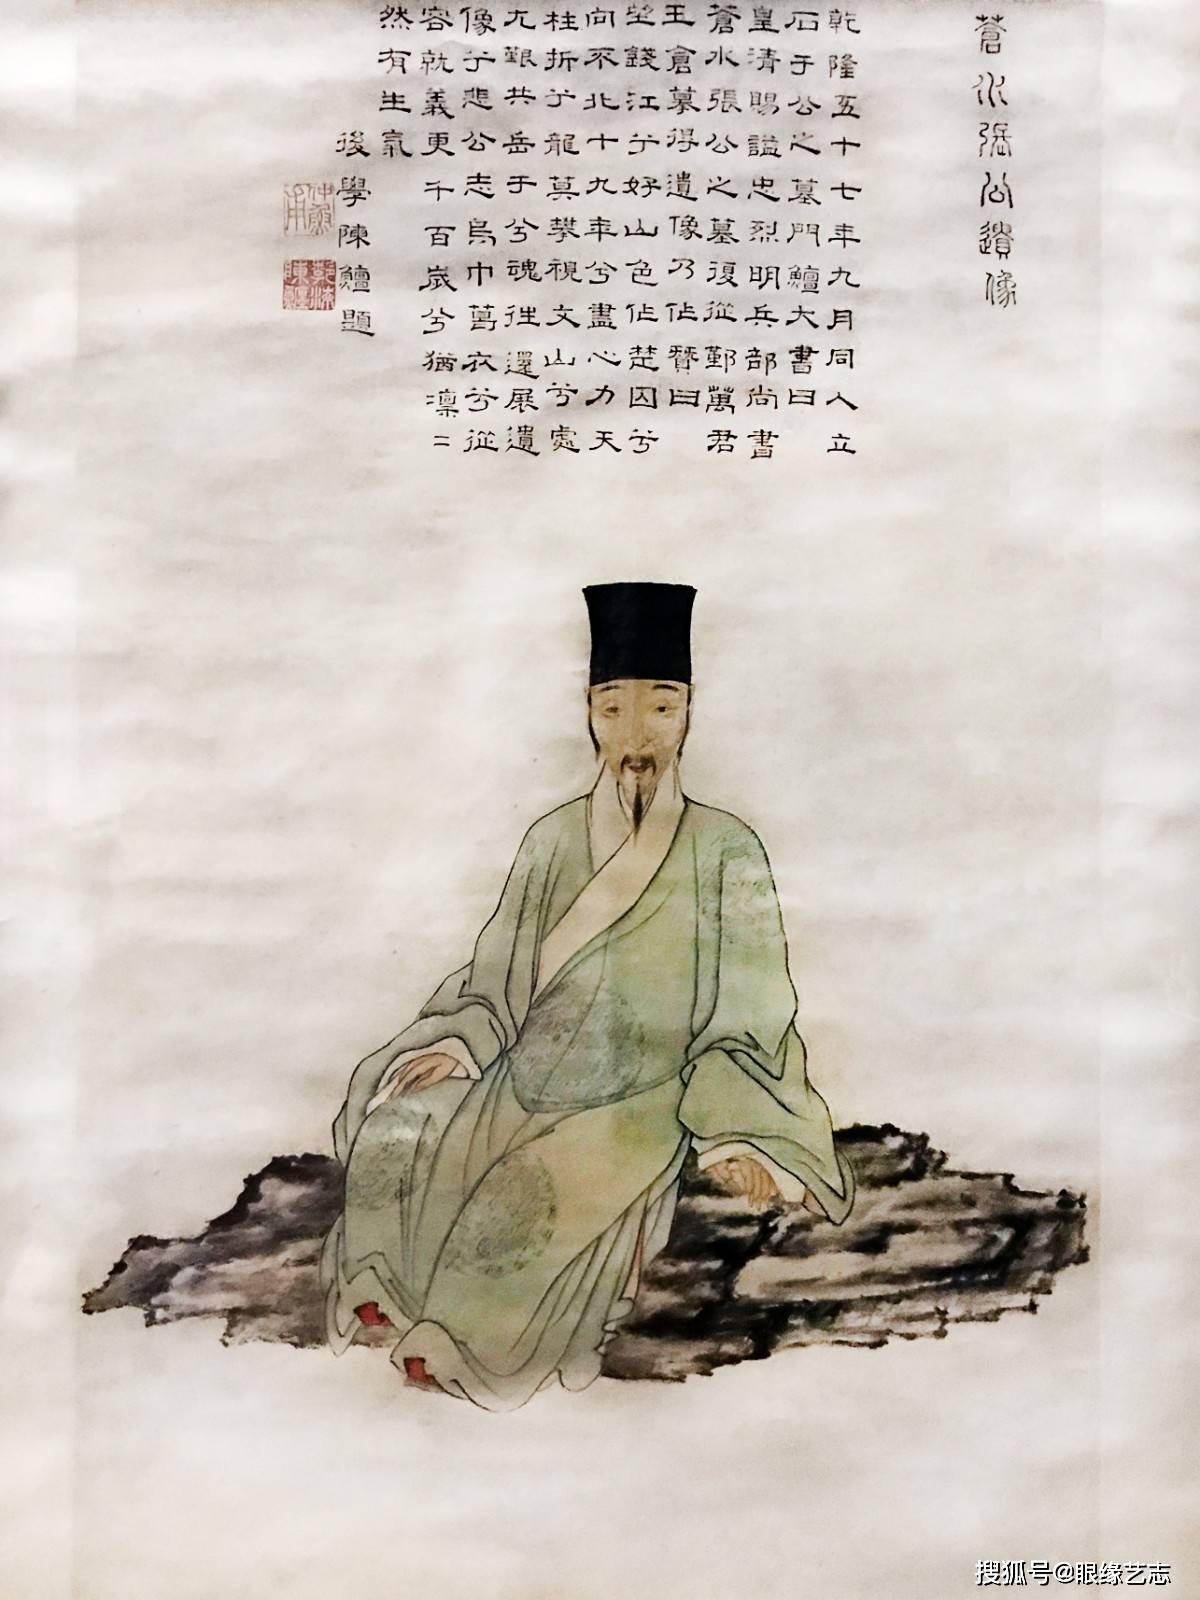 蒼水張公遺像
乾隆五十七年九月同人立
石于公之墓門鱣大書曰
皇清賜諡忠烈明兵部尚書
蒼水張公之墓復從鄞萬君
王倉摹得遺像乃作贊曰
望錢江兮好山色作楚囚兮
向不北十九年兮盡心力天
柱折兮龍莫攀視文山兮處
尤艱共岳于兮魂往還展遺
像兮悲公志烏巾葛衣兮從
容就義更千百歲兮猶凛二
然有生氣
後學陳鱣題
搜狐号@眼缘艺志